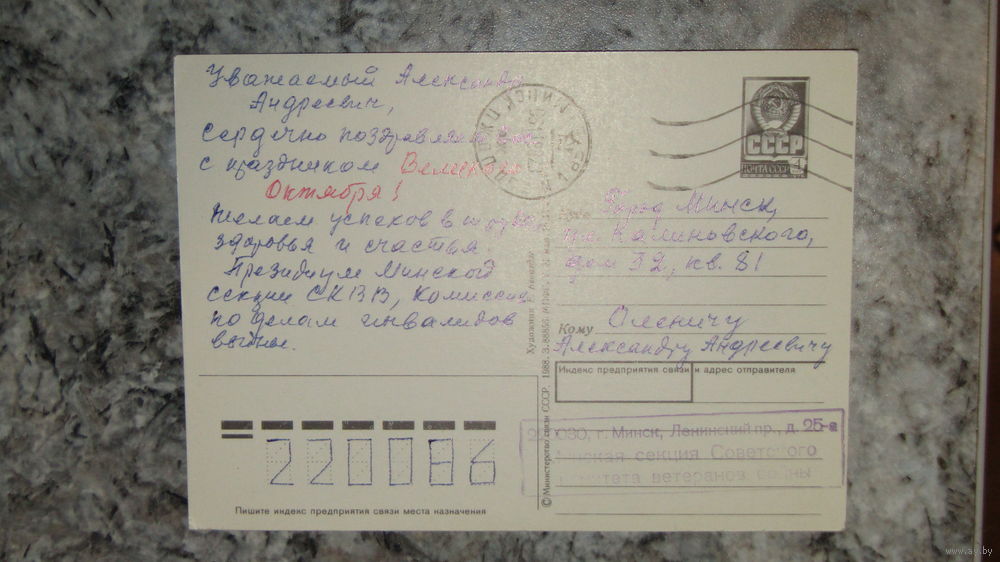 Уважаемый Александр
Андреевич,
Сердечно поздравляем Вас
с праздником Великого
Октября!
Желаем успехов в труде,
здоровья и счастья
Президиум Минской
секции СКВВ, Комиссия
по делам инвалидов
войны.
МИНСК
СССР
ПОЧТА СССР
4
Город Минск,
ул. Калиновского,
дом 52, кв. 81
Кому Оленичу
Александру Андреевичу
Индекс предприятия связи и адрес отправителя
г. Минск, Ленинский пр., д. 25-а
Минская секция Советского
комитета ветеранов войны
220086
Пишите индекс предприятия связи места назначения
© Министерство связи СССР. 1988.
Художник
www.ay.by